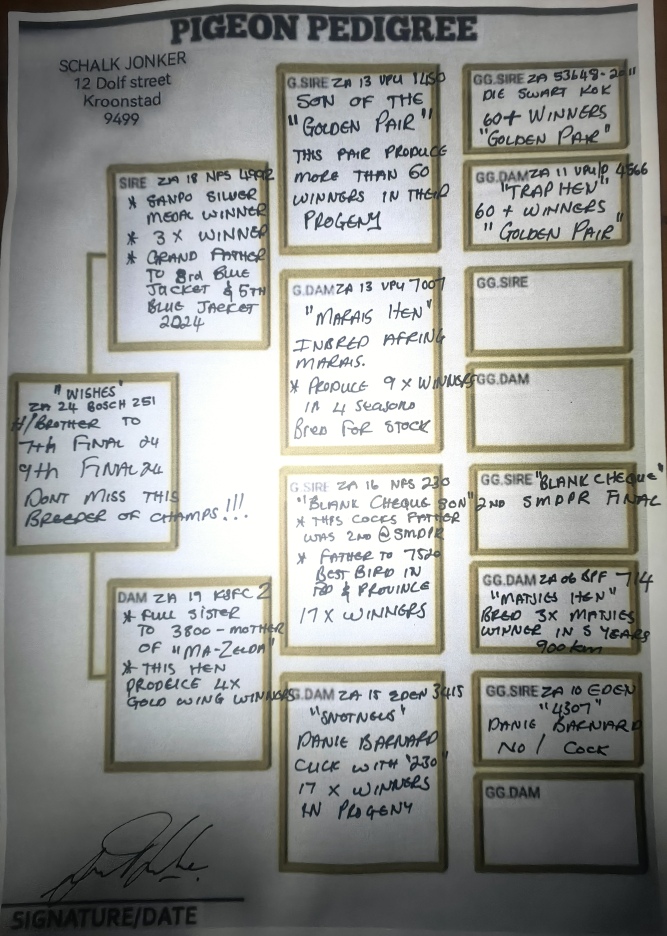 PIGEON PEDIGREE
SCHALK JONKER
12 Dolf street
Kroonstad
9499
"WISHES"
ZA 24 BOSCH 251
H/BROTHER TO
7th FINAL 24
9th FINAL 24
DONT MISS THIS
BREEDER OF CHAMPS!!!
SIRE ZA 18 NFS
* SANPO SILVER
MEDAL WINNER
* 3 X WINNER
* GRAND FATHER
TO 3rd BLUE
JACKET & 5TH
BLUE JACKET
2024
DAM ZA 19 KSFC 2
* FULL SISTER
TO 3800 - MOTHER
OF "MA-ZELDA"
* THIS HEN
PRODUCE 4X
GOLD WING WINNERS
G.SIRE ZA 13 VPU 1450
SON OF THE
"GOLDEN PAIR"
THIS PAIR PRODUCE
MORE THAN 60
WINNERS IN THEIR
PROGENY
G.DAM ZA 13 VPU 7007
"MARAIS HEN"
INBRED AFRING
MARAIS.
* PRODUCE 9 X WINNERS
IN 4 SEASONS
BRED FOR STOCK
G.SIRE ZA 16 NFS 230
"BLANK CHEQUE SON"
* THIS COCKS FATHER
WAS 2ND @ SMDPR
* FATHER TO 7520
BEST BIRD IN
& PROVINCE
17 X WINNERS
G.DAM ZA 15 EDEN 3415
"SNOTNEUS"
DANIE BARNARD
CLICK WITH "230"
17 X WINNERS
IN PROGENY
GG.SIRE ZA 53648-2011
DIE SWART KOK
60+ WINNERS
"GOLDEN PAIR"
GG.DAM ZA 11 VPU/P 4566
"TRAP HEN"
60 + WINNERS
"GOLDEN PAIR"
GG.SIRE
GG.DAM
GG.SIRE "BLANK CHEQUE"
2ND SMDPR FINAL
GG.DAM ZA 06 BPF 714
"MATJIES HEN"
BRED 3X MATJIES
WINNER IN 5 YEARS
900 km
GG.SIRE ZA 10 EDEN
"4307"
DANIE BARNARD
NO 1 COCK
GG.DAM
SIGNATURE/DATE